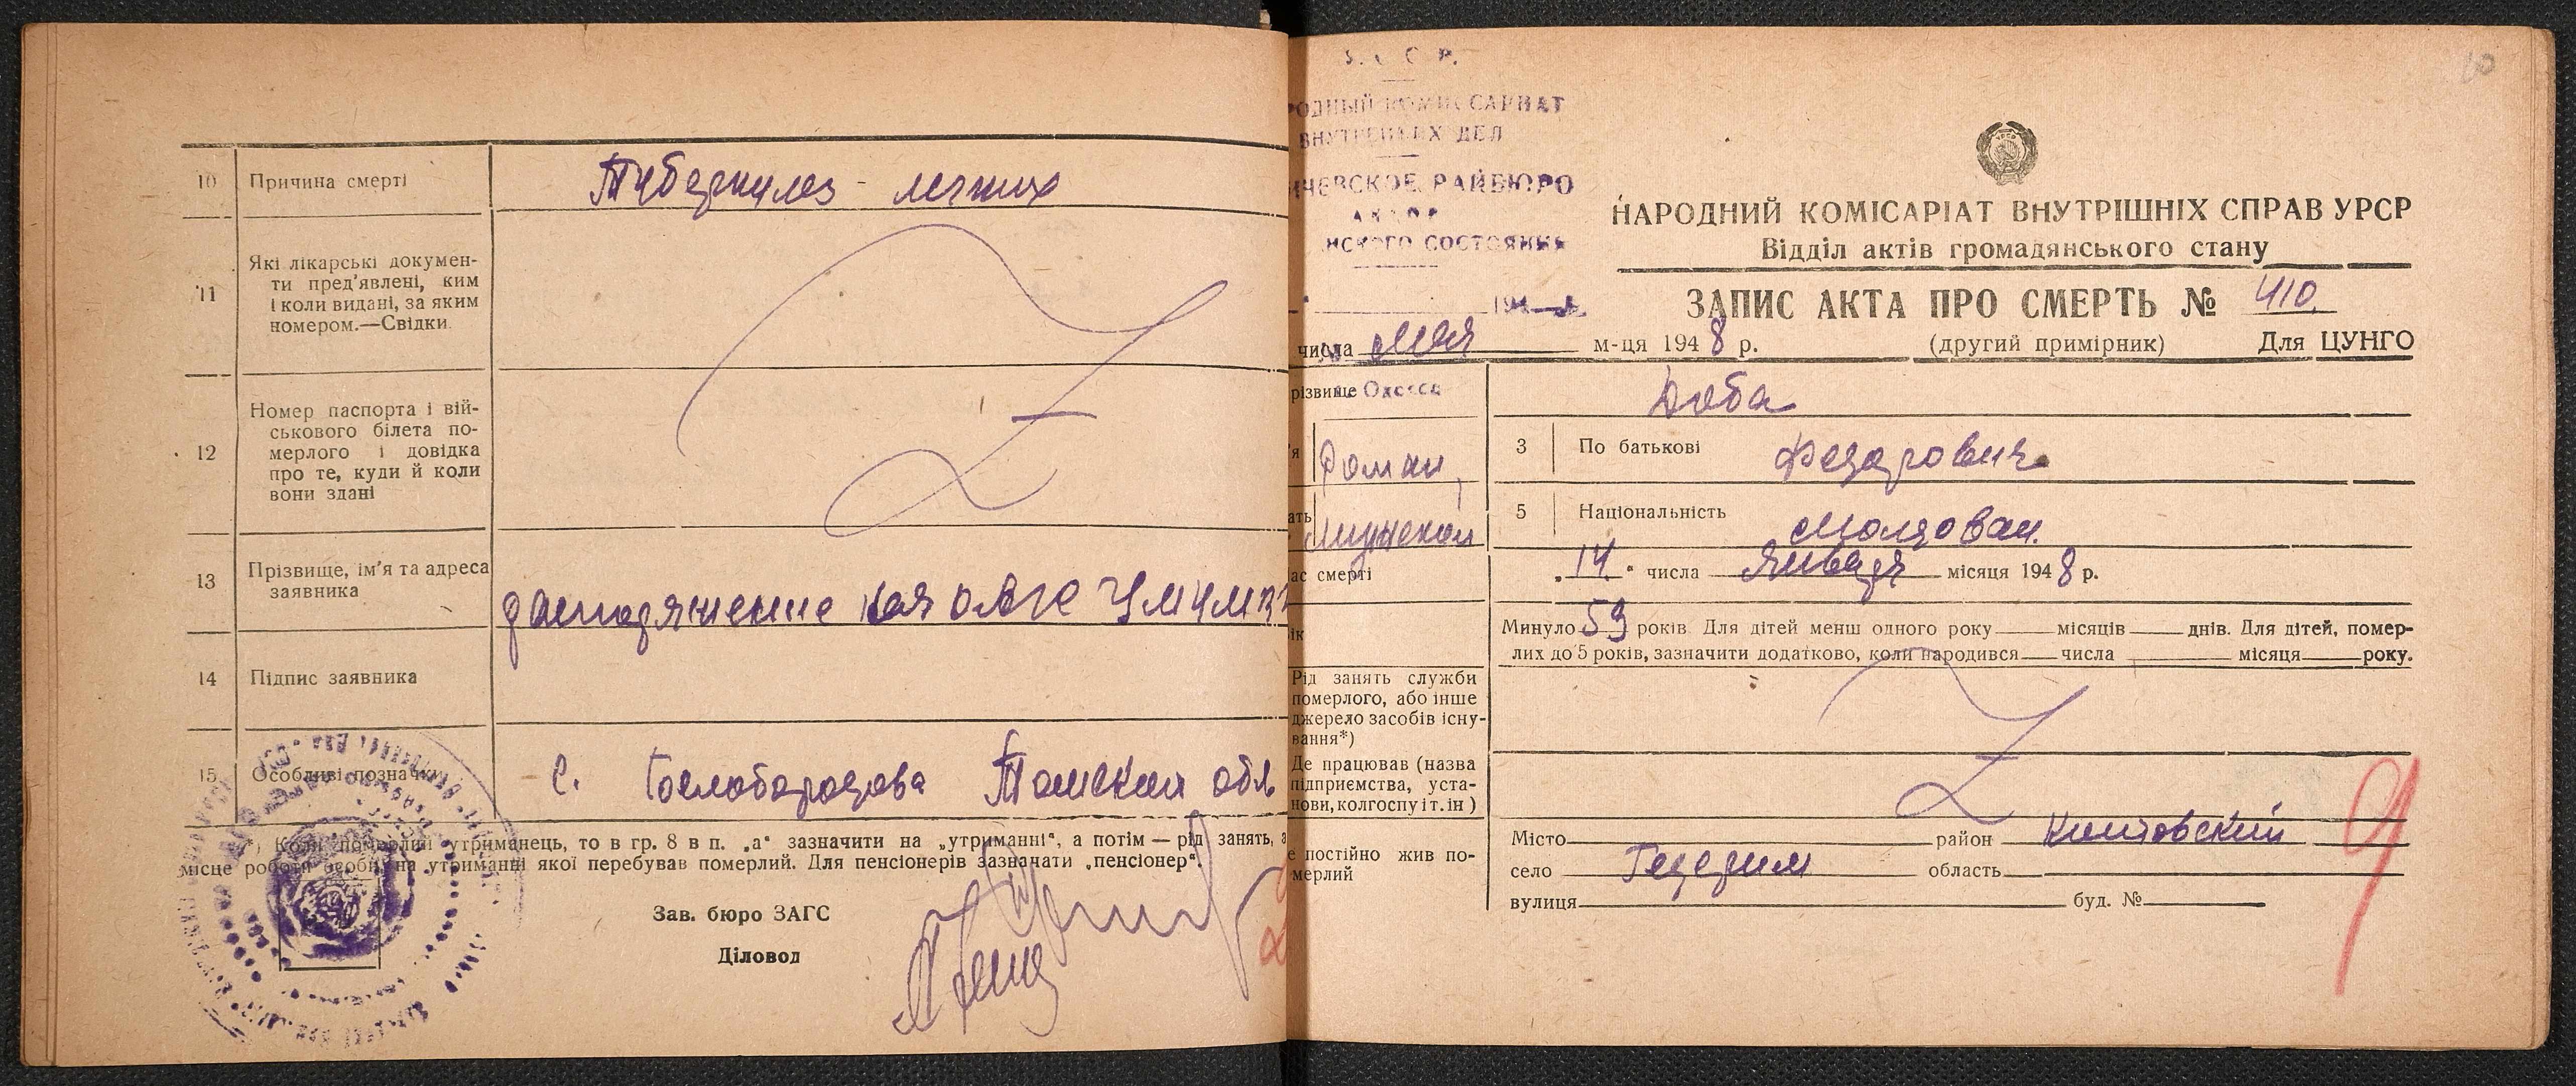 10 Причина смерті Туберкулез - легких
11 Які лікарські докумен-
ти пред'явлені, ким
і коли видані, за яким
номером.—Свідки.
12 Номер паспорта і вій-
ськового білета по-
мерлого і довідка
про те, куди й коли
вони здані
13 Прізвище, ім'я та адреса
заявника
14 Підпис заявника
15 Особливі позначки с. Томской обл
*) Коли померлий утриманець, то в гр. 8 в п. „а“ зазначити на „утриманні“, а потім — рід занять, а
місце роботи особи, на утриманні якої перебував померлий. Для пенсіонерів зазначати „пенсіонер“.
Зав. бюро ЗАГС
Діловод
10
РОДНЫЙ КОМИССАРИАТ
ВНУТРЕННИХ ДЕЛ
ИЧЕВСКОЕ РАЙБЮРО
АКТОВ
НСКОГО СОСТОЯНИЯ
194
Одесса
НАРОДНИЙ КОМІСАРІАТ ВНУТРІШНІХ СПРАВ УРСР
Відділ актів громадянського стану
ЗАПИС АКТА ПРО СМЕРТЬ № 410
числа мая м-ця 1948 р. (другий примірник) Для ЦУНГО
різвище Доба
я Роман 3 По батькові Федорович
ать Мужской 5 Національність Молдован.
ас смерті „14“ числа Января місяця 1948 р.
ік Минуло 59 років. Для дітей менш одного року місяців днів. Для дітей, помер-
лих до 5 років, зазначити додатково, коли народився числа місяця року.
Рід занять служби
померлого, або інше
джерело засобів існу-
вання*)
Де працював (назва
підприємства, уста-
нови, колгоспу і т. ін)
е постійно жив по-
мерлий
Місто район
село область
вулиця буд. №
9